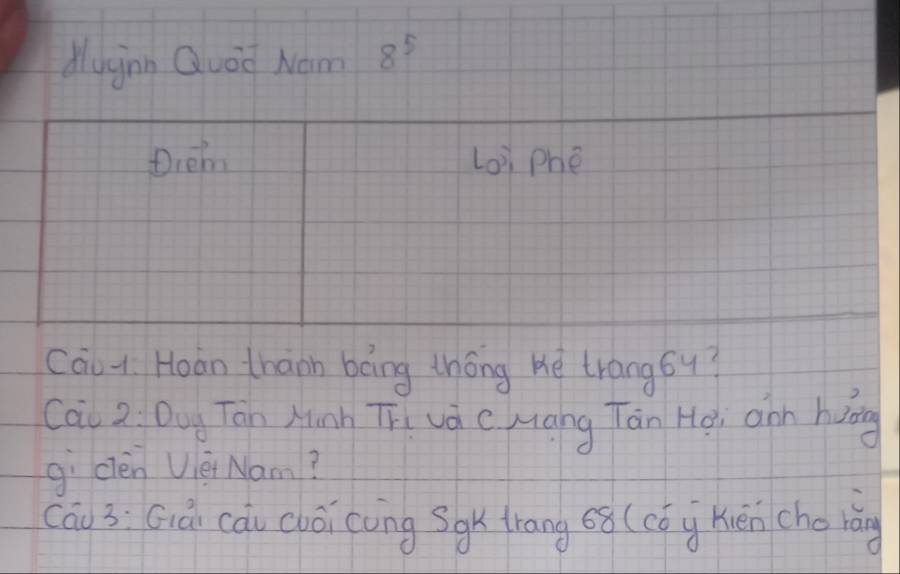 Huỳnh Quốc Nam 8⁵
Điểm Lời Phê
Câu 1: Hoàn thành bảng thống kê trang 64?
Câu 2: Duy Tân Minh Trị và C Mạng Tân Hợi ảnh hưởng
gì đến Việt Nam?
Câu 3: Giải câu cuối cùng Sgk trang 68 (có ý kiến cho rằng